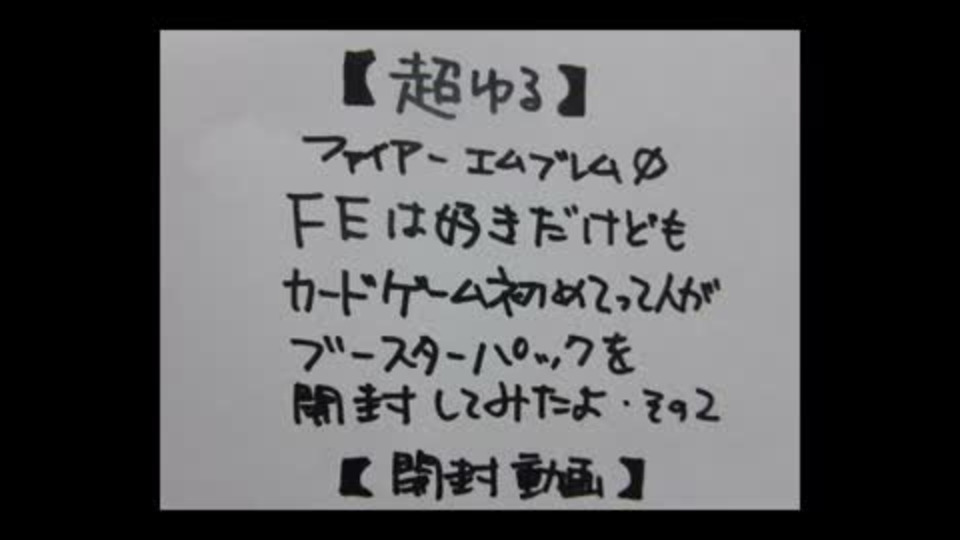 【超ゆる】
ファイアーエムブレム0
FEは好きだけども
カードゲーム初めてって人が
ブースターパックを
開封してみたよ・その2
【開封動画】